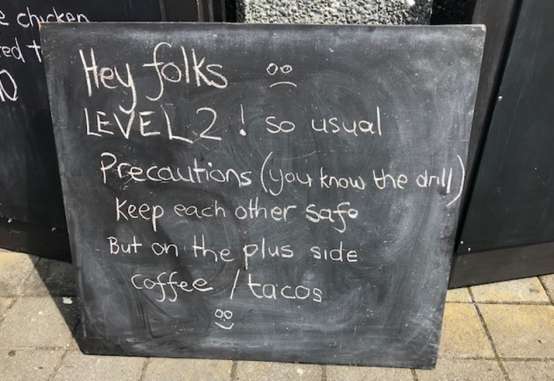 e chicken
ed t
Hey folks
LEVEL 2 ! so usual
Precautions (you know the drill)
Keep each other safe
But on the plus side
coffee / tacos